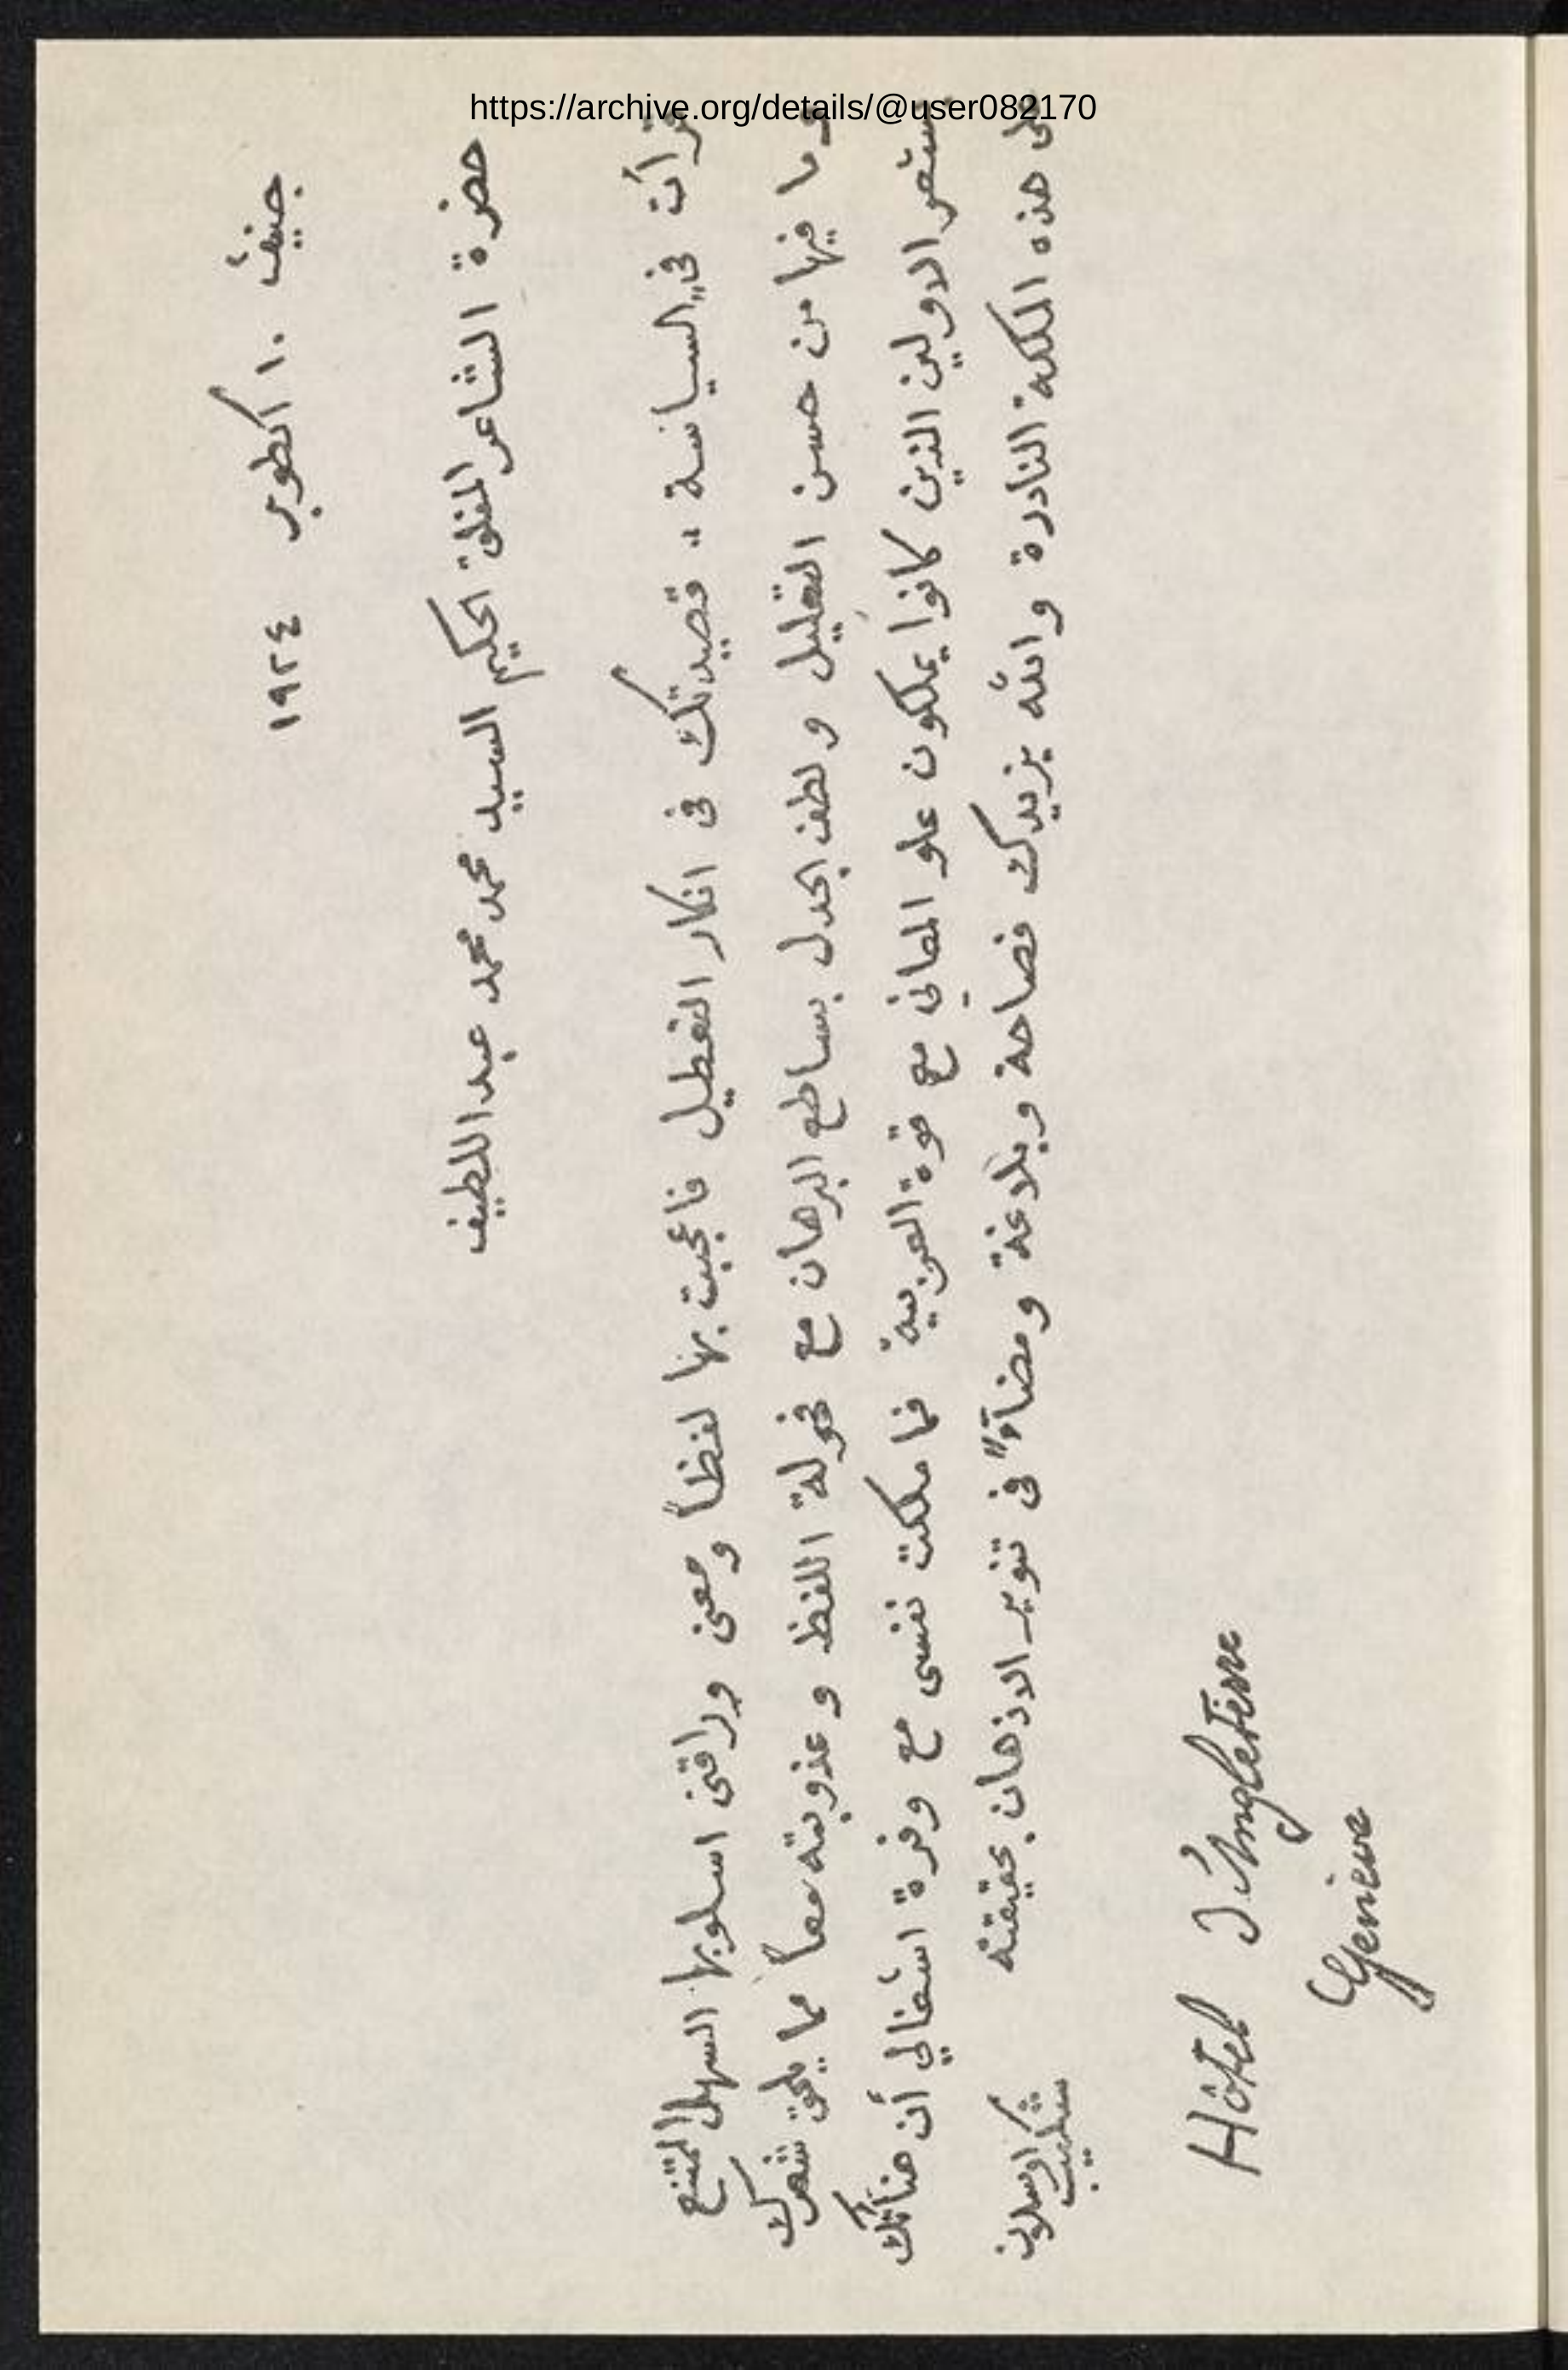 https://archive.org/details/@user082170
جنيف ١٠ اكطوبر ١٩٢٤
حضرة الشاعر المفلق الحكيم السيد محمد محمد عبد اللطيف
قرأت في "السياسة" قصيدتك فى انكار التعطيل فاعجبت بها لفظاً ومعنى وراقنى اسلوبها السهل الممتنع
وما فيها من حسن التعليل ولطف الجدل بساطع البرهان مع فحولة اللفظ وعذوبته معاً مما يلحق شعرك
بشعر الاولين الذين كانوا يملكون علو المعاني مع قوة العربية فما ملكت نفسى مع وفرة اشغالي أن هنأتك
على هذه الملكة النادرة والله يزيدك فصاحة وبلاغة ومضآءً فى تنوير الاذهان بحقيقته
شكيب ارسلان
Hôtel d'Angleterre
Genève